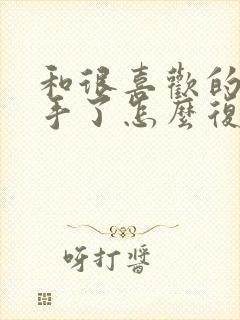 和很喜歡的
手了怎麼復
呀打醬